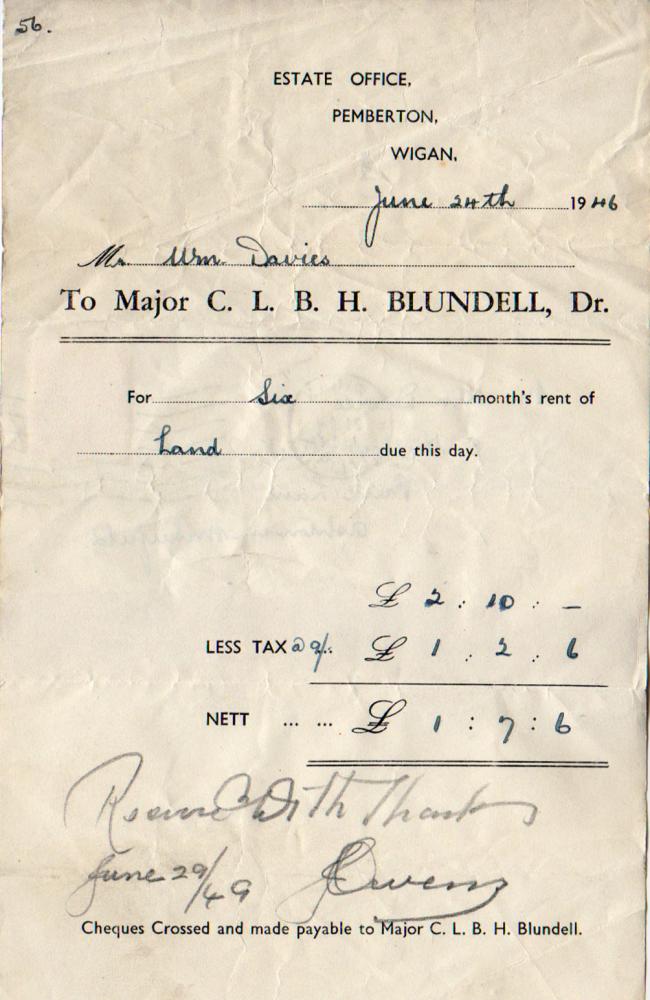 56.
ESTATE OFFICE,
PEMBERTON,
WIGAN,
June 24th 1946
Mr. Wm. Davies
To Major C. L. B. H. BLUNDELL, Dr.
For Six month's rent of
Land due this day.
£ 2 : 10 : –
LESS TAX @ 9/. £ 1 . 2 . 6
NETT ... ... £ 1 : 7 : 6
Received With Thanks
June 29/49 JOwens
Cheques Crossed and made payable to Major C. L. B. H. Blundell.